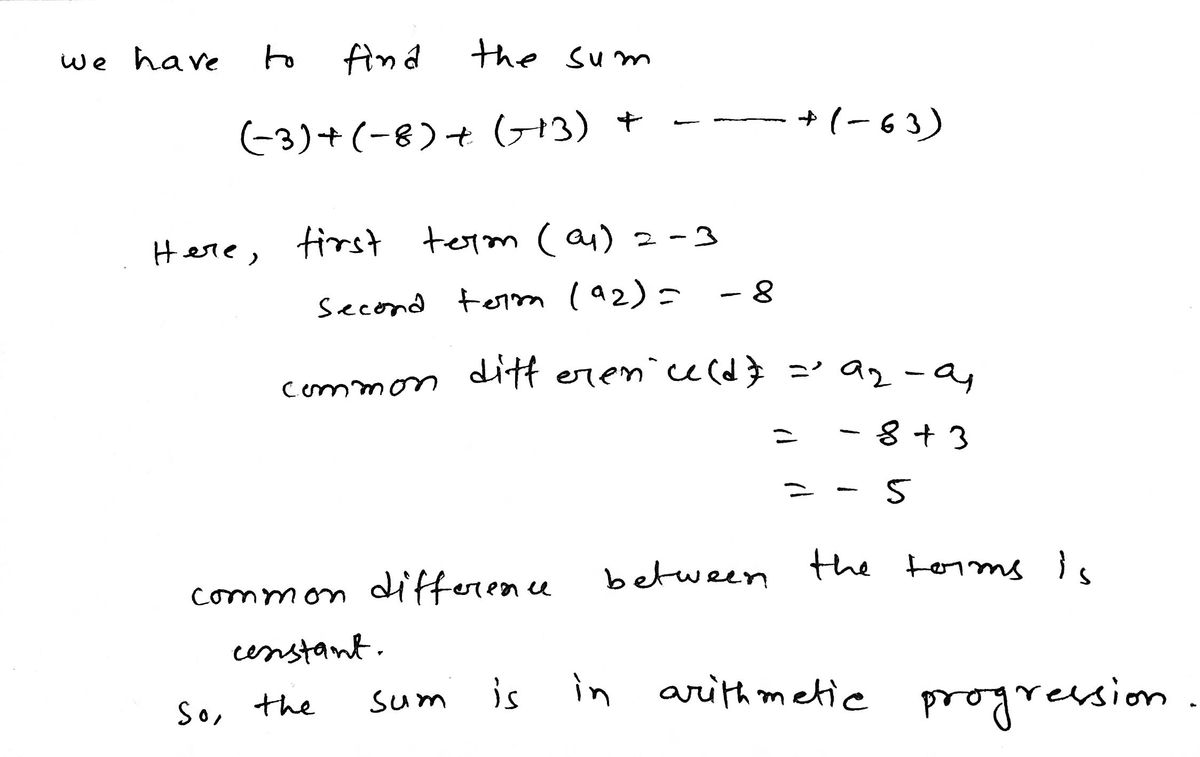 we have to find the sum
(-3)+(-8)+(-13) + ------+(-63)
Here, first term (a1) = -3
Second term (a2) = -8
common difference(d) = a2 - a1
= -8+3
= -5
common difference between the terms is
constant.
So, the sum is in arithmetic progression.